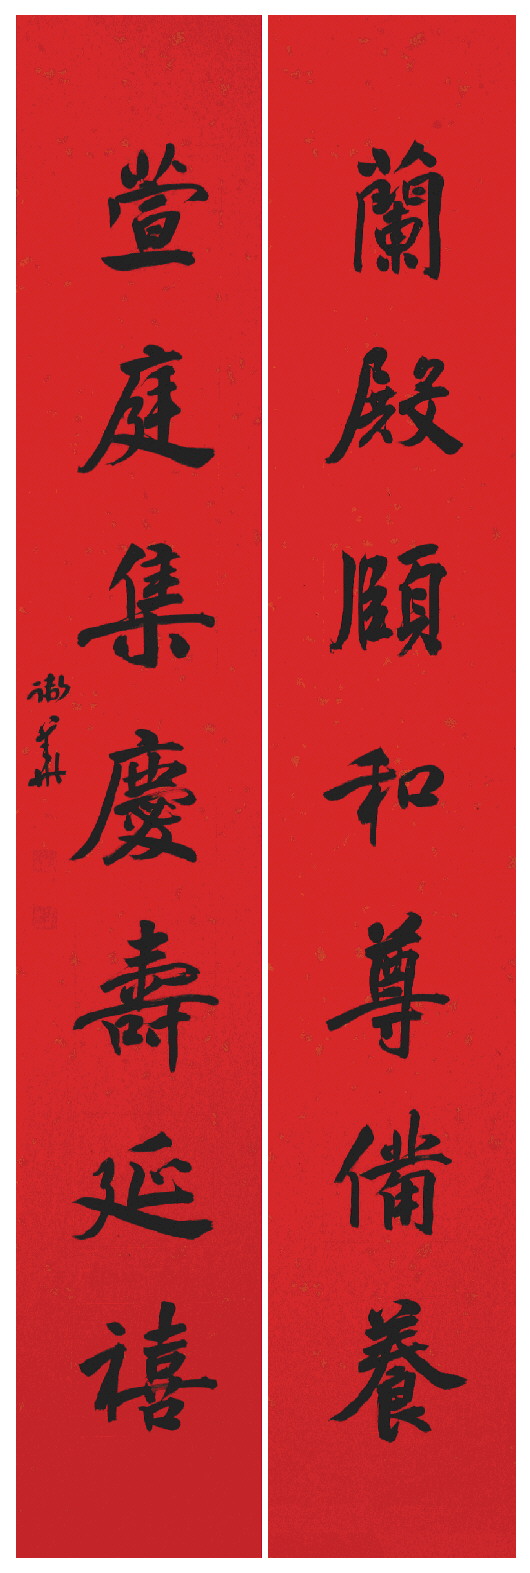 蘭殿頤和尊備養
萱庭集慶壽延禧